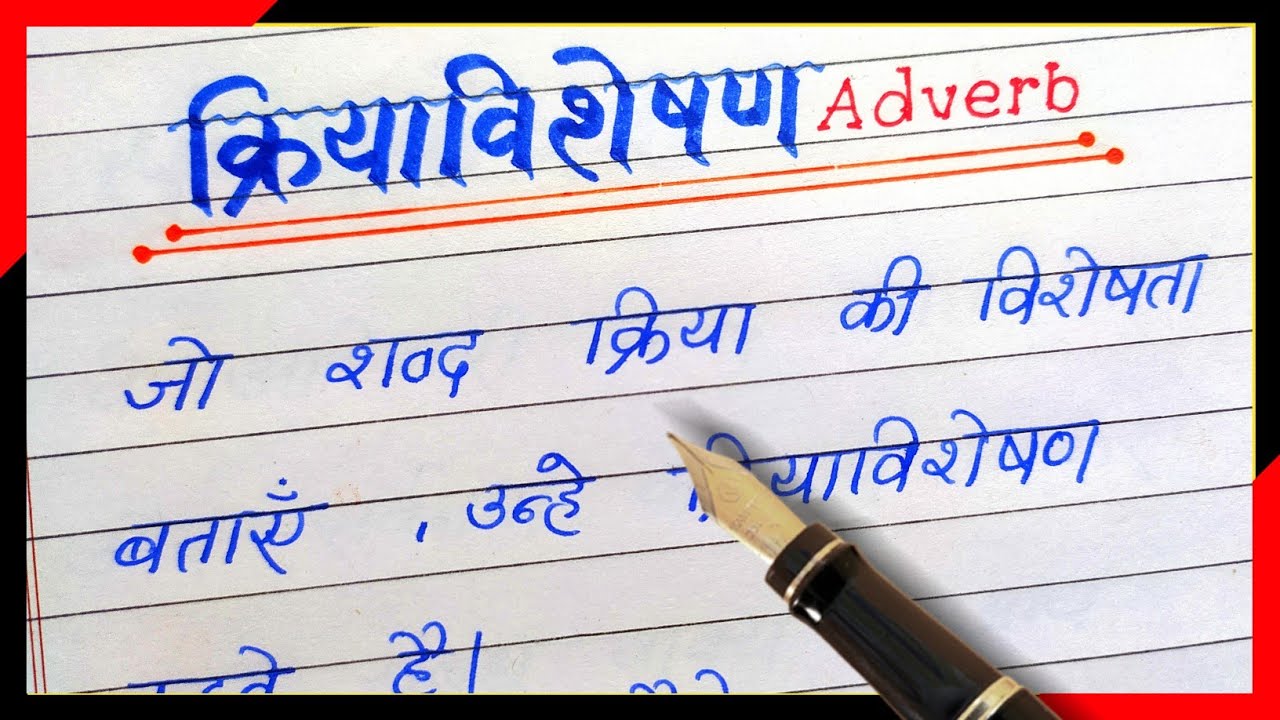 क्रियाविशेषण Adverb
जो शब्द क्रिया की विशेषता
बताएँ , उन्हे क्रियाविशेषण
है।